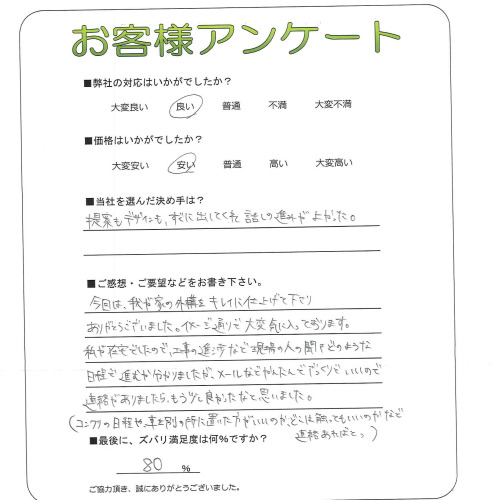 お客様アンケート
■弊社の対応はいかがでしたか？
大変良い 良い 普通 不満 大変不満
■価格はいかがでしたか？
大変安い 安い 普通 高い 大変高い
■当社を選んだ決め手は？
提案もデザインも、すぐに出してくれて話しの進みがよかった。
■ご感想・ご要望などをお書き下さい。
今回は、我が家の外構をキレイに仕上げて下さり
ありがとうございました。イメージ通りで大変気に入っております。
私が在宅でしたので、工事の進歩など現場の人の聞けどのような
日程で進むか分かりましたが、メールなどかんたんでざっくりでいいので
連絡がありましたら、もう少し良かったなと思いました。
(コンクリの日程や、車を別の所に置いた方がいいのか、どこは触ってもいいのかなど
連絡あればと。)
■最後に、ズバリ満足度は何％ですか？
80 %
ご協力頂き、誠にありがとうございました。